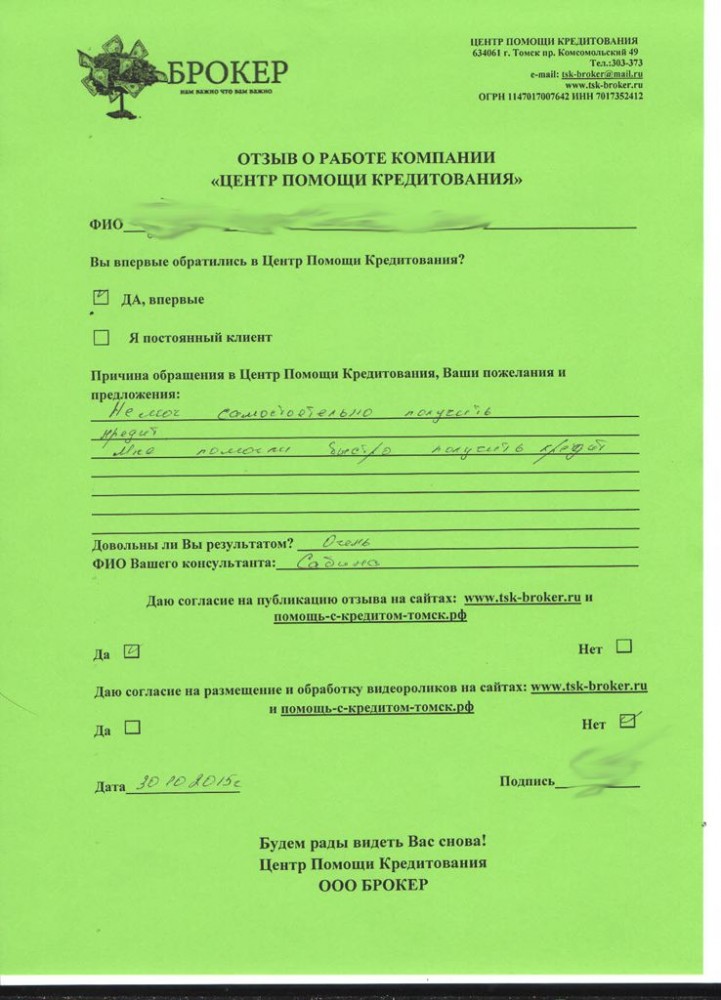 БРОКЕР
нам важно что вам важно
ЦЕНТР ПОМОЩИ КРЕДИТОВАНИЯ
634061 г. Томск пр. Комсомольский 49
Тел.:303-373
e-mail: tsk-broker@mail.ru
www.tsk-broker.ru
ОГРН 1147017007642 ИНН 7017352412
ОТЗЫВ О РАБОТЕ КОМПАНИИ
«ЦЕНТР ПОМОЩИ КРЕДИТОВАНИЯ»
ФИО
Вы впервые обратились в Центр Помощи Кредитования?
ДА, впервые
Я постоянный клиент
Причина обращения в Центр Помощи Кредитования, Ваши пожелания и
предложения:
Не мог самостоятельно получить
кредит
Мне помогли быстро получить кредит
Довольны ли Вы результатом? Очень
ФИО Вашего консультанта: Сабина
Даю согласие на публикацию отзыва на сайтах: www.tsk-broker.ru и
помощь-с-кредитом-томск.рф
Да Нет
Даю согласие на размещение и обработку видеороликов на сайтах: www.tsk-broker.ru
и помощь-с-кредитом-томск.рф
Да Нет
Дата 30 10 2015г Подпись
Будем рады видеть Вас снова!
Центр Помощи Кредитования
ООО БРОКЕР